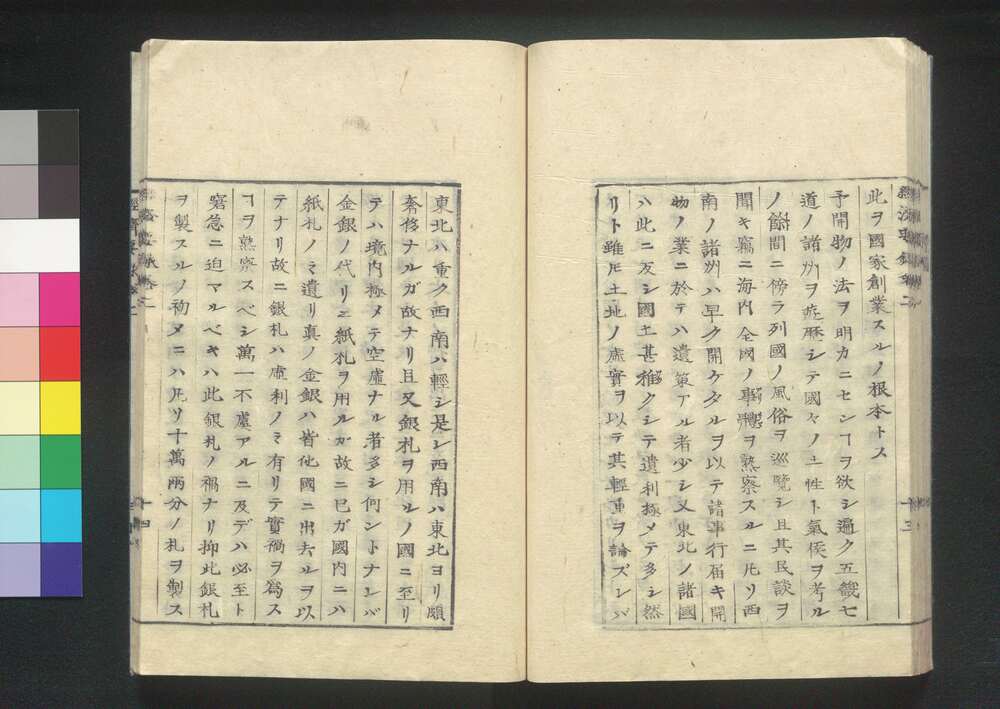 此ヲ國家創業スルノ根本トス
予開物ノ法ヲ明カニセンヿヲ欲シ遍ク五畿七
道ノ諸州ヲ歴シテ國々ノ土性ト氣侯ヲ考ル
ノ餘間ニ傍ラ列國ノ風俗ヲ巡覽シ且其民談ヲ
聞キ竊ニ海内全國ノ事ヲ熟察スルニ凡ソ西
南ノ諸州ハ早ク開ケタルヲ以テ諸事行届キ開
物ノ業ニ於テハ遺策アル者少シ又東北ノ諸國
ハ此ニ反シ國土甚稚クシテ遺利極メテ多シ然
リト雖𪜈土地ノ虛實ヲ以テ其輕重ヲ論ズレバ
十三
東北ハ重ク西南ハ輕シ是レ西南ハ東北ヨリ頗
奢侈ナルガ故ナリ且又銀札ヲ用ルノ國ニ至リ
テハ境内極メテ空虛ナル者多シ何ントナレバ
金銀ノ代リニ紙札ヲ用ルガ故ニ已ガ國内ニハ
紙札ノミ遺リ真ノ金銀ハ皆他國ニ出去ルヲ以
テナリ故ニ銀札ハ虛利ノミ有リテ實禍ヲ爲ス
ヿヲ熟察スベシ萬一不虞アルニ及デハ必至ト
窘急ニ迫マルベキハ此銀札ノ禍ナリ抑此銀札
ヲ製スルノ初メニハ凡ソ十萬兩分ノ札ヲ製ス
十四